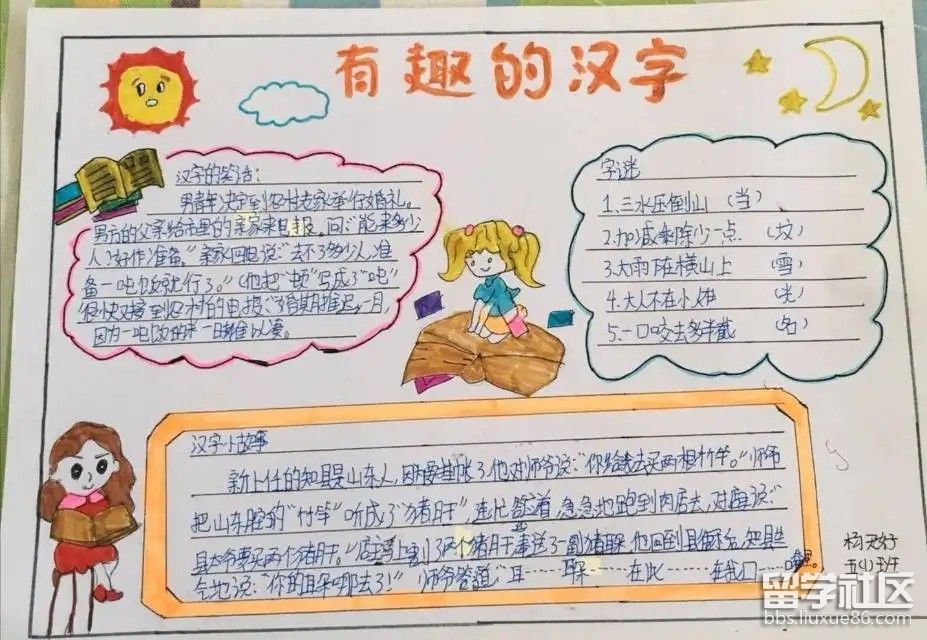 有趣的汉字
汉字的笑话:
男青年决定到农村去家举行婚礼。
男方的父亲给市里的亲家来电报。问:"能来多少
人?好作准备。"亲家回电说:"去不了多少人,准
备一吨饭就行了。"(他把"顿"写成了"吨"
很快又接到农村的电报:"婚期推迟一月,
因为一吨饭一日难以
字谜
1.三水压倒山 (当)
2.加减乘除少一点 (坟)
3.大雨下在横山上 (雪)
4.大人不在小 (光)
5.一口咬去多半截 (名)
汉字小故事
新上任的知县是山东人,因为要挂帐了他对师爷说:"你给我去买两根竹竿。"师爷
把山东腔的"竹竿"听成了"猪肝",连忙答道着,急急地跑到肉店去,对店主说:"
县太爷要买两个猪肝。"店主马上割了两个猪肝 送了一副猪耳 他回到县衙后,知县生
气地说:"你的耳朵哪去了!"师爷答道:"耳……耳朵……在此……在我口……
杨
五(4)班
留学社区
bbs.liuxue86.com